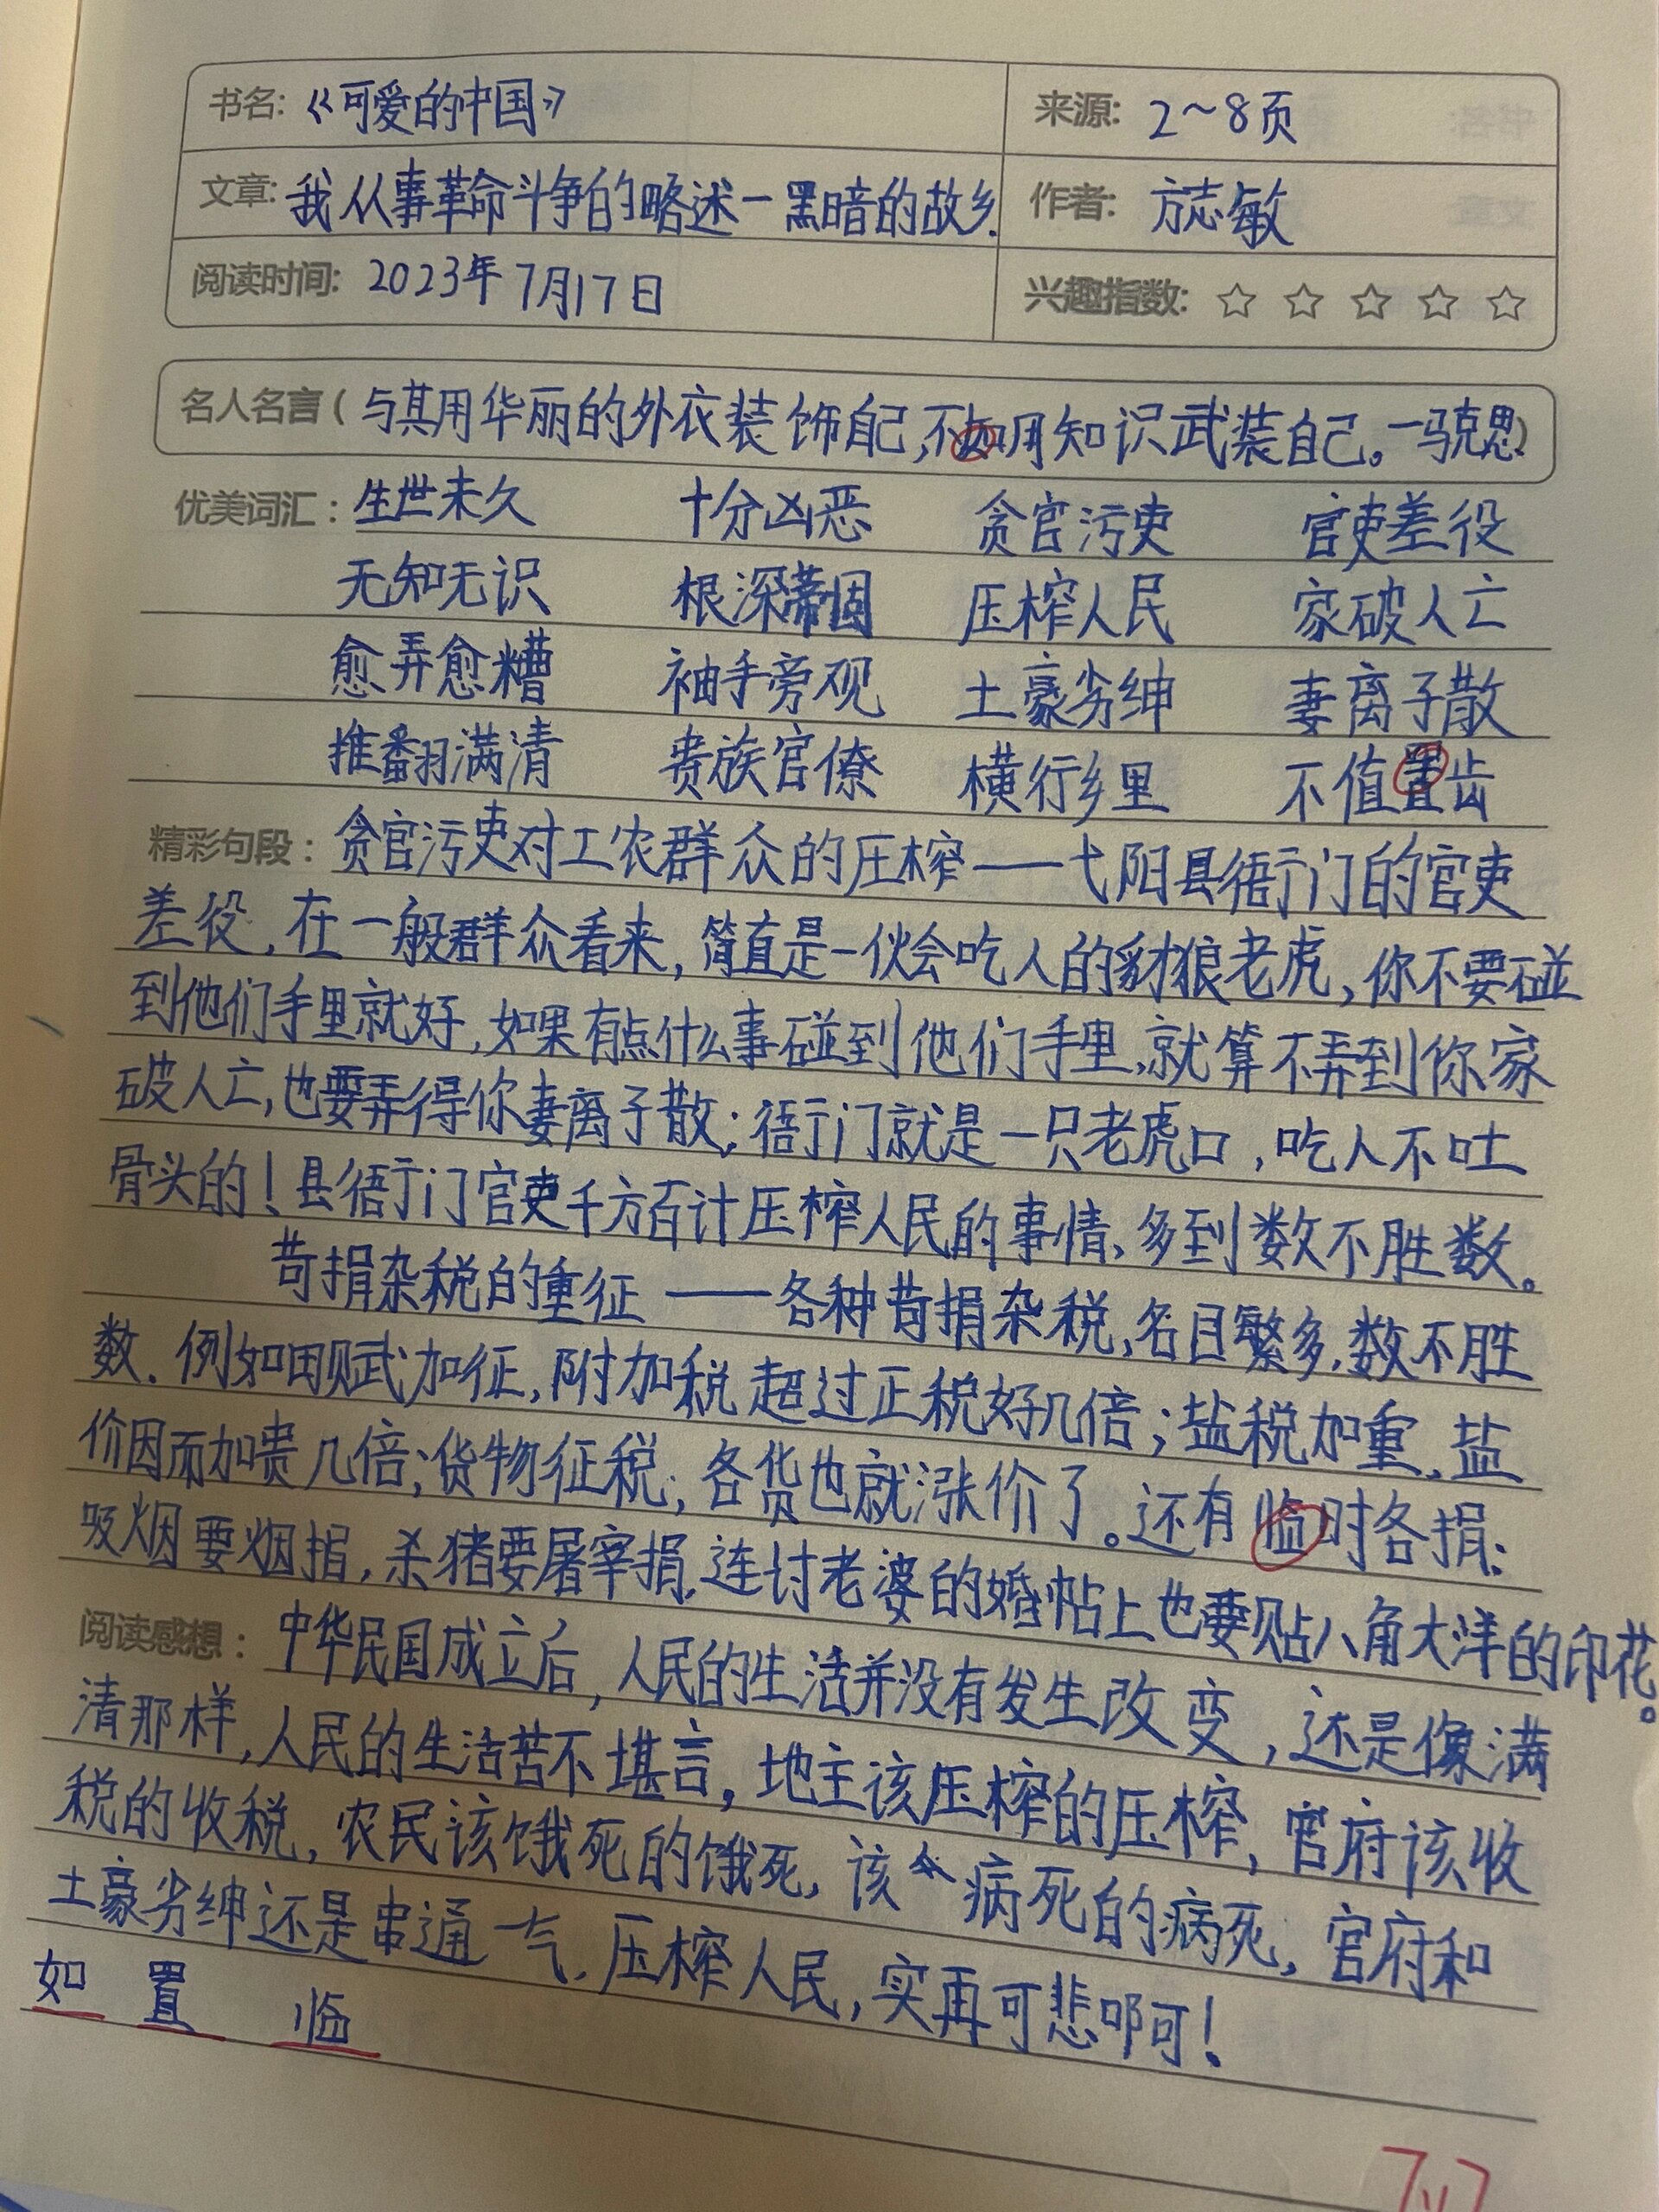 书名:《可爱的中国》 来源: 2~8页
文章: 我从事革命斗争的略述-黑暗的故乡. 作者: 方志敏
阅读时间: 2023年7月17日 兴趣指数: ☆ ☆ ☆ ☆ ☆
名人名言(与其用华丽的外衣装饰自己,不如用知识武装自己。一马克思)
优美词汇: 生世未久 十分凶恶 贪官污吏 官吏差役
无知无识 根深蒂固 压榨人民 家破人亡
愈弄愈糟 袖手旁观 土豪劣绅 妻离子散
推翻满清 贵族官僚 横行乡里 不值置齿
精彩句段: 贪官污吏对工农群众的压榨——弋阳县衙门的官吏
差役,在一般群众看来,简直是一伙会吃人的豺狼老虎,你不要碰
到他们手里就好,如果有点什么事碰到他们手里,就算不弄到你家
破人亡,也要弄得你妻离子散;衙门就是一只老虎口,吃人不吐
骨头的!县衙门官吏千方百计压榨人民的事情、多到数不胜数。
苛捐杂税的重征——各种苛捐杂税,名目繁多,数不胜
数.例如田赋加征,附加税超过正税好几倍;盐税加重,盐
价因而加贵几倍;货物征税;各货也就涨价了。还有临时各捐:
吸烟要烟捐,杀猪要屠宰捐,连讨老婆的婚帖上也要贴八角大洋的印花。
阅读感想: 中华民国成立后,人民的生活并没有发生改变,还是像满
清那样,人民的生活苦不堪言,地主该压榨的压榨,官府该收
税的收税,农民该饿死的饿死,该病死的病死,官府和
土豪劣绅还是串通一气,压榨人民,实再可悲啊可!
如 置 临
7.17